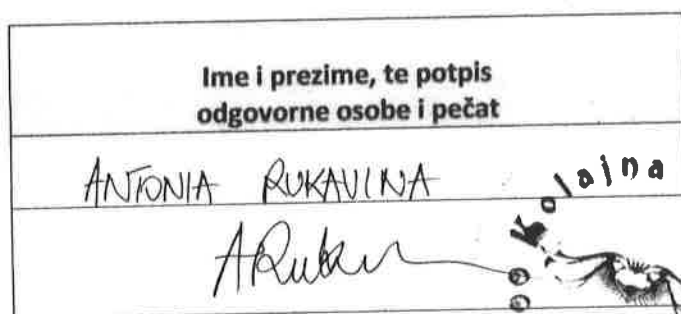 Ime i prezime, te potpis
odgovorne osobe i pečat
ANTONIA RUKAVINA
ARuk
Kolajna